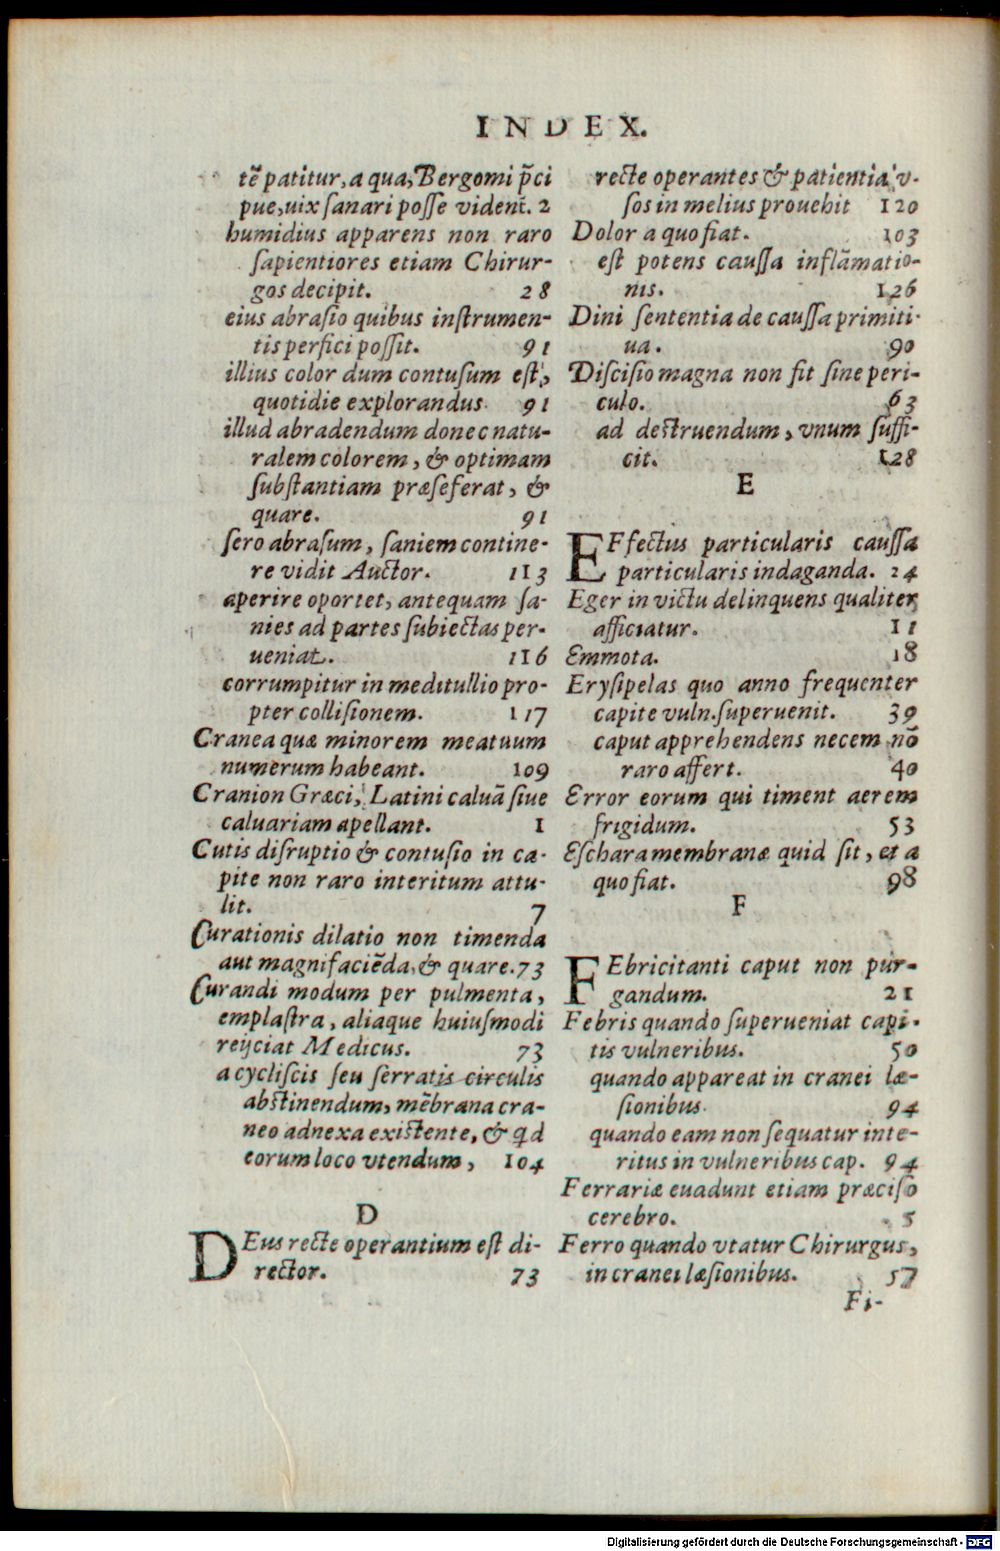 INDEX.
tẽ patitur, a qua, Bergomi p̃ci
pue, uix ſanari poſſe vident̃. 2
humidius apparens non raro
ſapientiores etiam Chirur-
gos decipit. 28
eius abraſio quibus inſtrumen-
tis perfici poſſit. 91
illius color dum contuſum eſt,
quotidie explorandus 91
illud abradendum donec natu-
ralem colorem, & optimam
ſubſtantiam præſeferat, &
quare. 91
ſero abraſum, ſaniem contine-
re vidit Auctor. 113
aperire oportet, antequam ſa-
nies ad partes ſubiectas per-
ueniat. 116
corrumpitur in meditullio pro-
pter colliſionem. 117
Cranea quæ minorem meatuum
numerum habeant. 109
Cranion Græci, Latini caluã ſiue
caluariam apellant. 1
Cutis diſruptio & contuſio in ca-
pite non raro interitum attu-
lit. 7
Curationis dilatio non timenda
aut magnifaciẽda, & quare. 73
Curandi modum per pulmenta,
emplaſtra, aliaque huiuſmodi
reijciat Medicus. 73
a cycliſcis ſeu ſerratis circulis
abſtinendum, mẽbrana cra-
neo adnexa exiſtente, & qd
eorum loco vtendum, 104
D
DEus recte operantium eſt di-
rector. 73
recte operantes & patientia v-
ſos in melius prouehit 120
Dolor a quo fiat. 103
eſt potens cauſſa inflãmatio-
nis. 126
Dini ſententia de cauſſa primiti-
ua. 90
Diſciſio magna non fit ſine peri-
culo. 63
ad deſtruendum, vnum ſuffi-
cit. 128
E
EFfectus particularis cauſſa
particularis indaganda. 24
Eger in victu delinquens qualiter
afficiatur. 11
Emmota. 18
Eryſipelas quo anno frequenter
capite vuln. ſuperuenit. 39
caput apprehendens necem nõ
raro affert. 40
Error eorum qui timent aerem
frigidum. 53
Eſchara membranæ quid ſit, et a
quo fiat. 98
F
FEbricitanti caput non pur-
gandum. 21
Febris quando ſuperueniat capi-
tis vulneribus. 50
quando appareat in cranei læ-
ſionibus 94
quando eam non ſequatur inte-
ritus in vulneribus cap. 94
Ferrariæ euadunt etiam præciſo
cerebro. 5
Ferro quando vtatur Chirurgus,
in cranei læſionibus. 57
Fi-
Digitalisierung gefördert durch die Deutsche Forschungsgemeinschaft - DFG